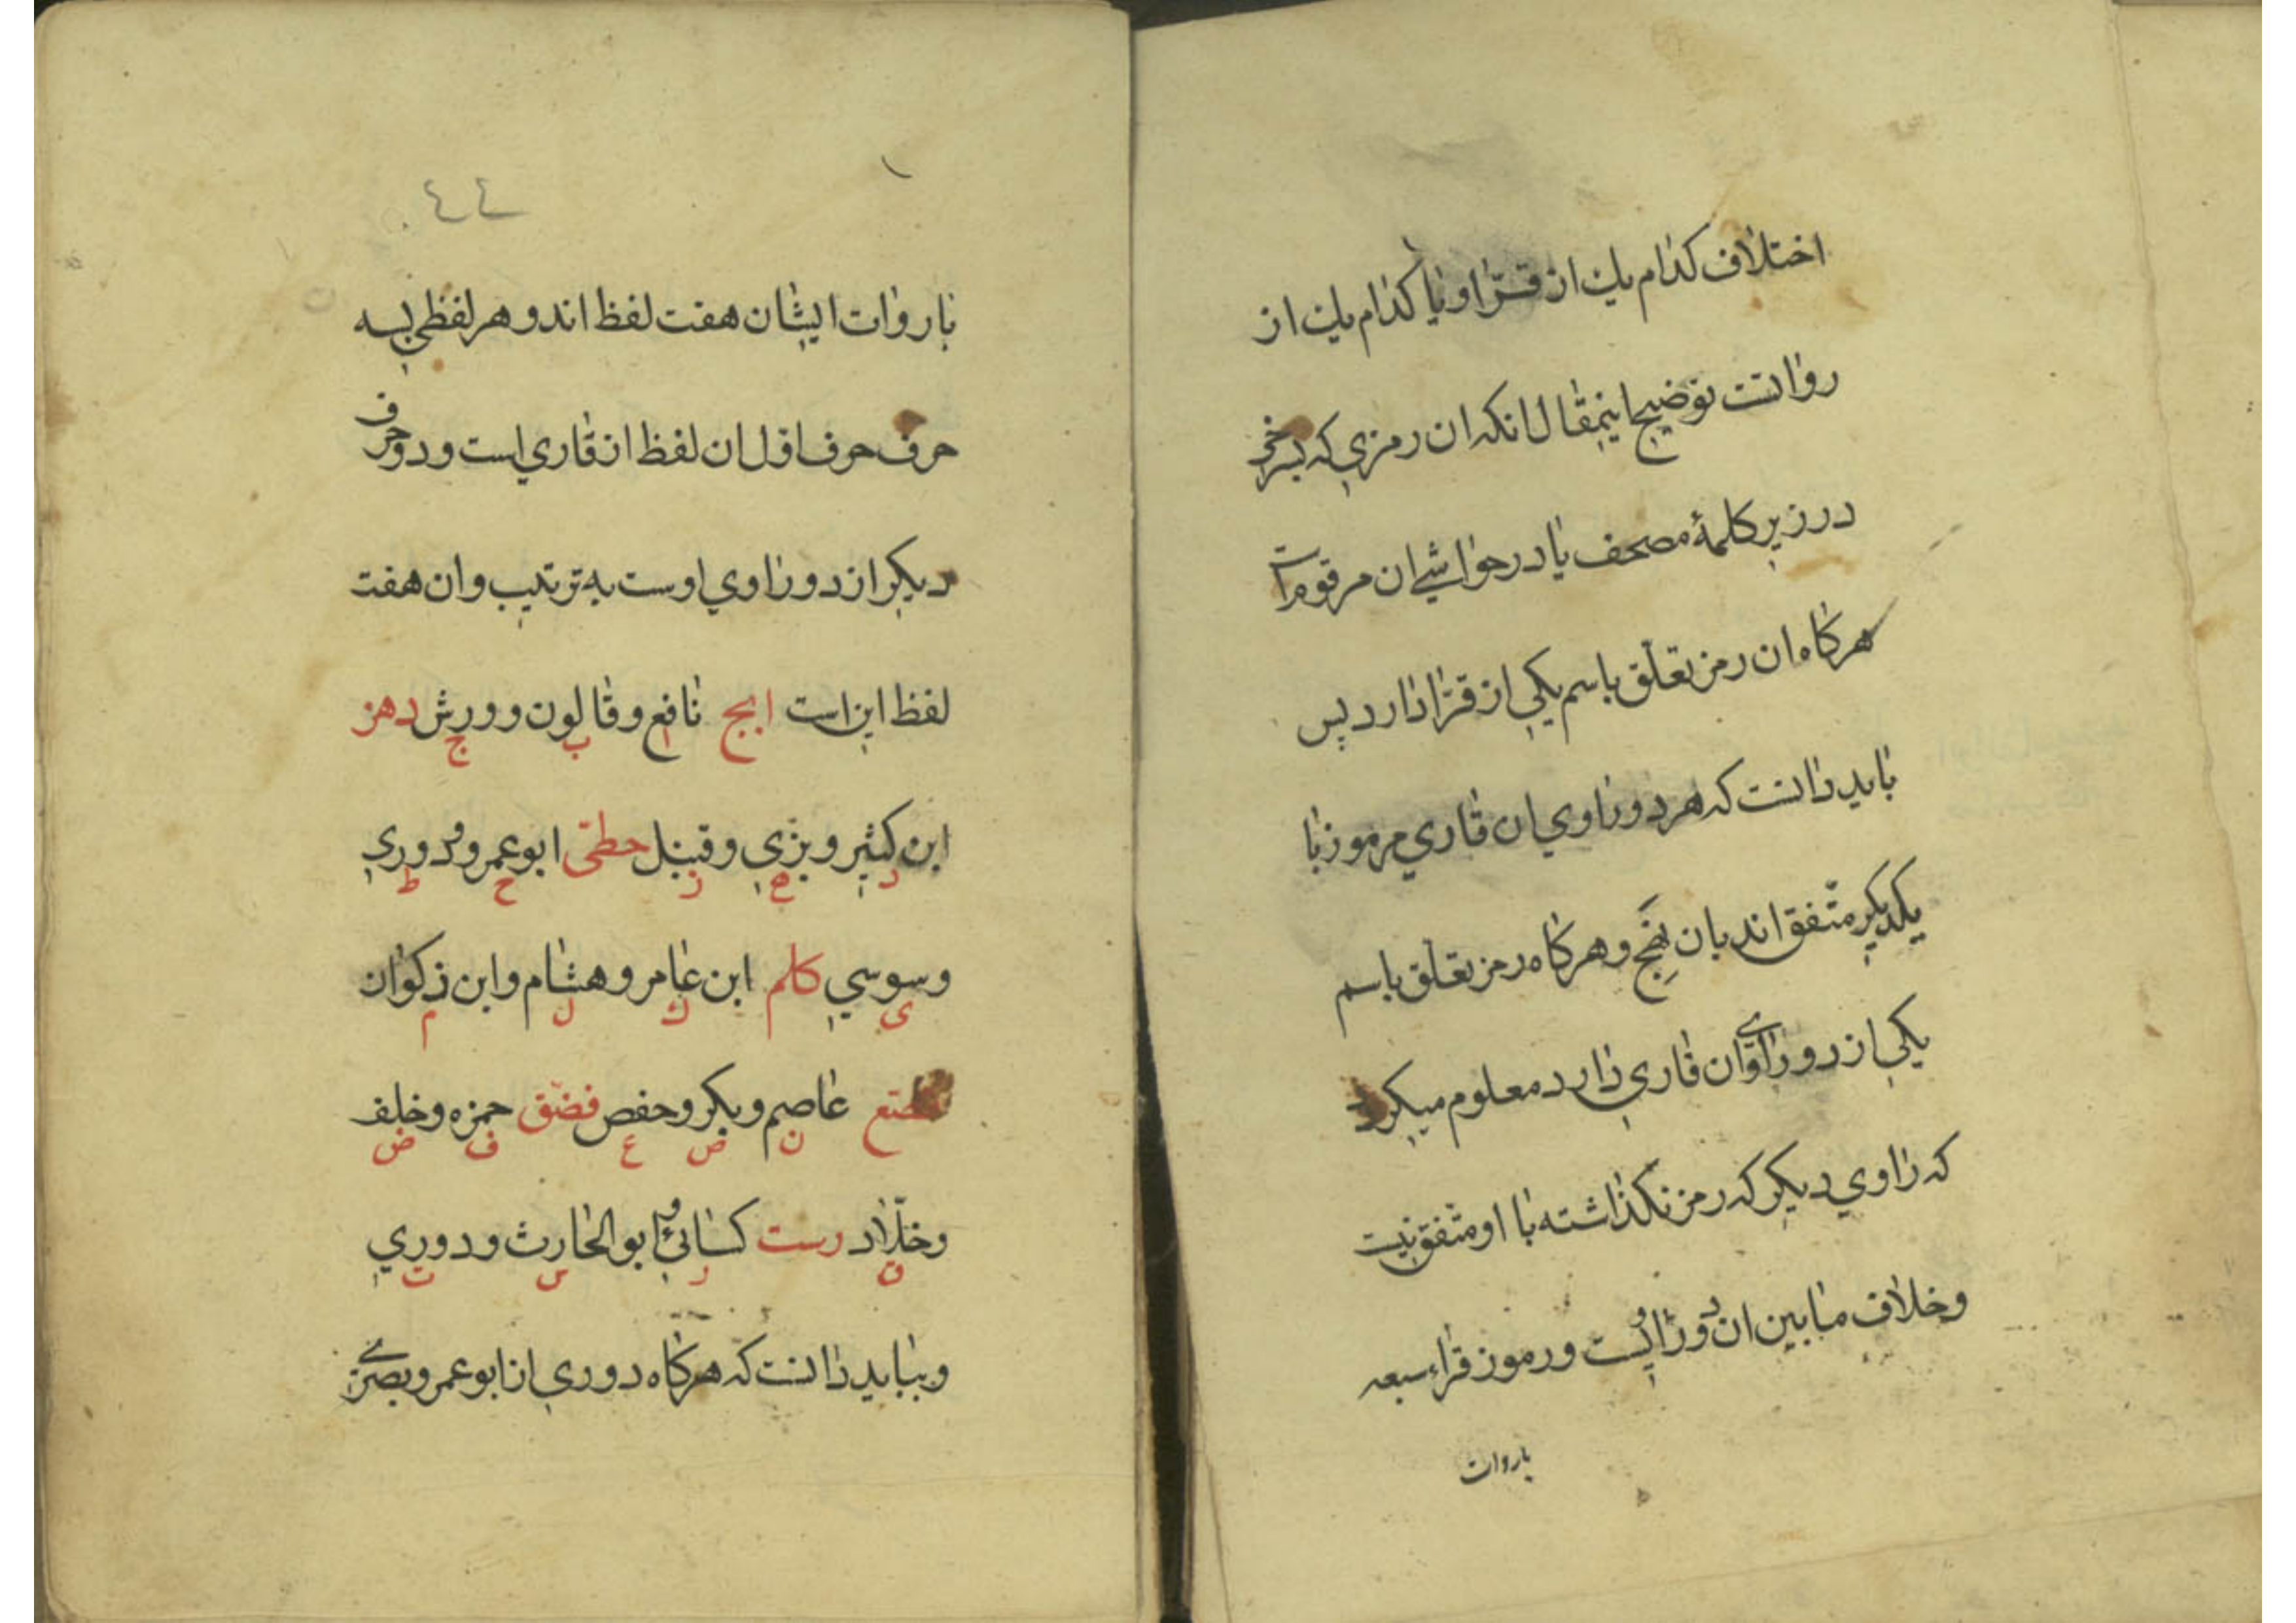 اختلاف کدام یك از قرّا و یا کدام یك از
روانست توضیح اینمقال انکه ان رمزی که بسرخی
در زیر کلمهٔ مصحف یا در حواشی ان مرقوم است
هرکاه ان رمز تعلّق باسم یکی از قرّا دارد پس
باید دانست که هر دو راوی ان قاری مرموز با
یکدیکر متّفق اند بان نهج و هرکاه رمز تعلّق باسم
یکی از دو راوی ان قاری دارد معلوم میکردد
که راوی دیکر که رمز نکذاشته با او متفق نیست
و خلاف مابین ان دو راویست و رموز قراء سبعه
باروات
٤٤
با روات ایشان هفت لفظ اند و هر لفظی بسه
حرف حرف اول ان لفظ از قاری است و دو حرف
دیکر از دو راوی اوست به ترتیب و ان هفت
لفظ این است ابج نافع و قالون و ورش دهز
ا ب ج
ابن کثیر و بزّی و قنبل حطی ابو عمرو و دوری
د ه ز ح ط
و سوسی کلم ابن عامر و هشام و ابن ذکوان
ی ك ل م
نصع عاصم و بکر و حفص فضق حمزه و خلف
ن ص ع ف ض
و خلّاد رست کسائی و ابو الحارث و دوری
ق ر س ت
و بباید دانست که هرکاه دوری از ابو عمرو بصری